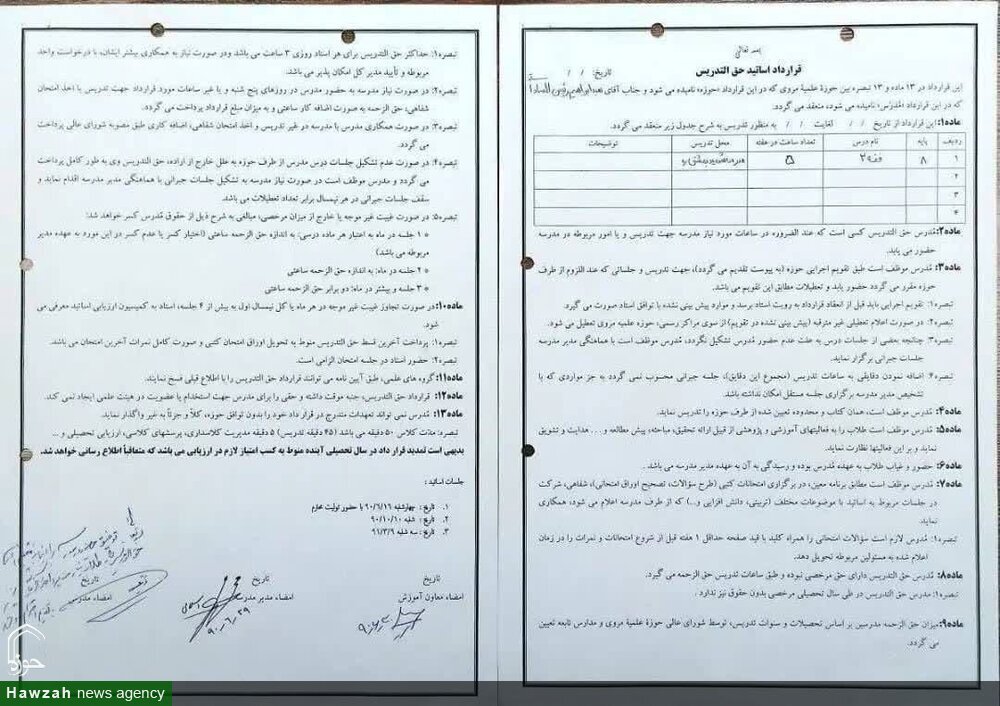 بسمه تعالی
قرارداد اساتید حق التدریس
تاریخ: / /
این قرارداد در ۱۳ ماده و ۱۳ تبصره بین حوزهٔ علمیهٔ مروی که در این قرارداد «حوزه» نامیده می شود و جناب آقای سید ابراهیم رئیس السادات
که در این قرارداد «مُدرّس» نامیده می شود، منعقد می گردد.
ماده۱: این قرارداد از تاریخ / / لغایت / / به منظور تدریس به شرح جدول زیر منعقد می گردد.
ردیف پایه نام درس تعداد ساعت در هفته محل تدریس توضیحات
۱ ۸ فقه ۲ ۵
۲
۳
۴
ماده۲: مُدرس حق التدریس کسی است که عند الضروره در ساعات مورد نیاز مدرسه جهت تدریس و یا امور مربوطه در مدرسه
حضور می یابد.
ماده۳: مُدرس موظف است طبق تقویم اجرایی حوزه (به پیوست تقدیم می گردد)، جهت تدریس و جلساتی که عند اللزوم از طرف
حوزه مقرر می گردد حضور یابد و تعطیلات مطابق این تقویم می باشد.
تبصره۱: تقویم اجرایی باید قبل از انعقاد قرارداد به رویت استاد برسد و موارد پیش بینی نشده با توافق استاد صورت می گیرد.
تبصره۲: در صورت اعلام تعطیلی غیر مترقبه (پیش بینی نشده در تقویم) از سوی مراکز رسمی، حوزه علمیه مروی تعطیل می شود.
تبصره۳: چنانچه بعضی از جلسات درس به علت عدم حضور مُدرس تشکیل نگردد، مُدرس موظف است با هماهنگی مدیر مدرسه
جلسات جبرانی برگزار نماید.
تبصره۴: اضافه نمودن دقایقی به ساعات تدریس (مجموع این دقایق)، جلسه جبرانی محسوب نمی گردد به جز مواردی که با
تشخیص مدیر مدرسه برگزاری جلسه مستقل امکان نداشته باشد.
ماده۴: مُدرس موظف است، همان کتاب و محدوده تعیین شده از طرف حوزه را تدریس نماید.
ماده۵: مُدرس موظف است طلاب را به فعالیتهای آموزشی و پژوهشی از قبیل ارائه تحقیق، مباحثه، پیش مطالعه و... هدایت و تشویق
نماید و بر این فعالیتها نظارت نماید.
ماده۶: حضور و غیاب طلاب به عهده مُدرس بوده و رسیدگی به آن به عهده مدیر مدرسه می باشد.
ماده۷: مُدرس موظف است مطابق برنامه معین، در برگزاری امتحانات کتبی (طرح سؤالات، تصحیح اوراق امتحانی)، شفاهی، شرکت
در جلسات مربوط به اساتید با موضوعات مختلف (تربیتی، دانش افزایی و..) که از طرف مدرسه اعلام می شود، همکاری
نماید.
تبصره۱: مُدرس لازم است سؤالات امتحانی را همراه کلید با قید صفحه حداقل ۱ هفته قبل از شروع امتحانات و نمرات را در زمان
اعلام شده به مسئولین مربوطه تحویل دهد.
ماده۸: مُدرس حق التدریس دارای حق مرخصی نبوده و طبق ساعات تدریس حق الزحمه می گیرد.
تبصره۱: مدرس حق التدریس در طی سال تحصیلی مرخصی بدون حقوق نیز ندارد.
ماده۹: میزان حق الزحمه مدرسین بر اساس تحصیلات و سنوات تدریس، توسط شورای عالی حوزهٔ علمیهٔ مروی و مدارس تابعه تعیین
می گردد.
تبصره۱: حداکثر حق التدریس برای هر استاد روزی ۳ ساعت می باشد ودر صورت نیاز به همکاری بیشتر ایشان، با درخواست واحد
مربوطه و تأیید مدیر کل امکان پذیر می باشد.
تبصره۲: در صورت نیاز مدرسه به حضور مدرس در روزهای پنج شنبه و یا غیر ساعات مورد قرارداد جهت تدریس یا اخذ امتحان
شفاهی، حق الزحمه به صورت اضافه کار ساعتی و به میزان مبلغ قرارداد پرداخت می گردد.
تبصره۳: در صورت همکاری مدرس با مدرسه در غیر تدریس و اخذ امتحان شفاهی، اضافه کاری طبق مصوبه شورای عالی پرداخت
می گردد.
تبصره۴: در صورت عدم تشکیل جلسات درس مدرس از طرف حوزه به علل خارج از اراده، حق التدریس وی به طور کامل پرداخت
می گردد و مدرس موظف است در صورت نیاز مدرسه به تشکیل جلسات جبرانی با هماهنگی مدیر مدرسه اقدام نماید و
سقف جلسات جبرانی در هر نیمسال برابر تعداد تعطیلات می باشد.
تبصره۵: در صورت غیبت غیر موجه یا خارج از میزان مرخصی، مبالغی به شرح ذیل از حقوق مُدرس کسر خواهد شد:
* ۱ جلسه در ماه به اعتبار هر ماده درسی: به اندازه حق الزحمه ساعتی (اختیار کسر یا عدم کسر در این مورد به عهده مدیر
مربوطه می باشد)
* ۲ جلسه در ماه: به اندازه حق الزحمه ساعتی
* ۳ جلسه و بیشتر در ماه: دو برابر حق الزحمه ساعتی
ماده۱۰: در صورت تجاوز غیبت غیر موجه در هر ماه یا کل نیمسال اول به بیش از ۴ جلسه، استاد به کمیسیون ارزیابی اساتید معرفی می
شود.
تبصره۱: پرداخت آخرین قسط حق التدریس منوط به تحویل اوراق امتحان کتبی و صورت کامل نمرات آخرین امتحان می باشد.
تبصره۲: حضور استاد در جلسه امتحان الزامی است.
ماده۱۱: گروه های علمی، طبق آیین نامه می توانند قرارداد حق التدریس را با اطلاع قبلی فسخ نمایند.
ماده۱۲: قرارداد حق التدریس، جنبه موقت داشته و حقی را برای مدرس جهت استخدام یا عضویت در هیئت علمی ایجاد نمی کند.
ماده۱۳: مُدرس نمی تواند تعهدات مندرج در قرار داد خود را بدون توافق حوزه، کلاً و جزئاً به غیر واگذار نماید.
تبصره: مدّت کلاس ۵۰ دقیقه می باشد (۴۵ دقیقه تدریس) ۵ دقیقه مدیریت کلاسداری، پرسشهای کلاسی، ارزیابی تحصیلی و ...
بدیهی است تمدید قرار داد در سال تحصیلی آینده منوط به کسب امتیاز لازم در ارزیابی می باشد که متعاقباً اطلاع رسانی خواهد شد.
جلسات اساتید:
۱. تاریخ: چهارشنبه ۹۰/۶/۱۶ با حضور تولیت محترم
۲. تاریخ: شنبه ۹۰/۱۰/۱۰
۳. تاریخ: سه شنبه ۹۱/۳/۹
تاریخ
امضاء معاون آموزش
تاریخ
امضاء مدیر مدرسه
۹۰/۶/۲۹
تاریخ
امضاء مدرس
حوزه
Hawzah news agency